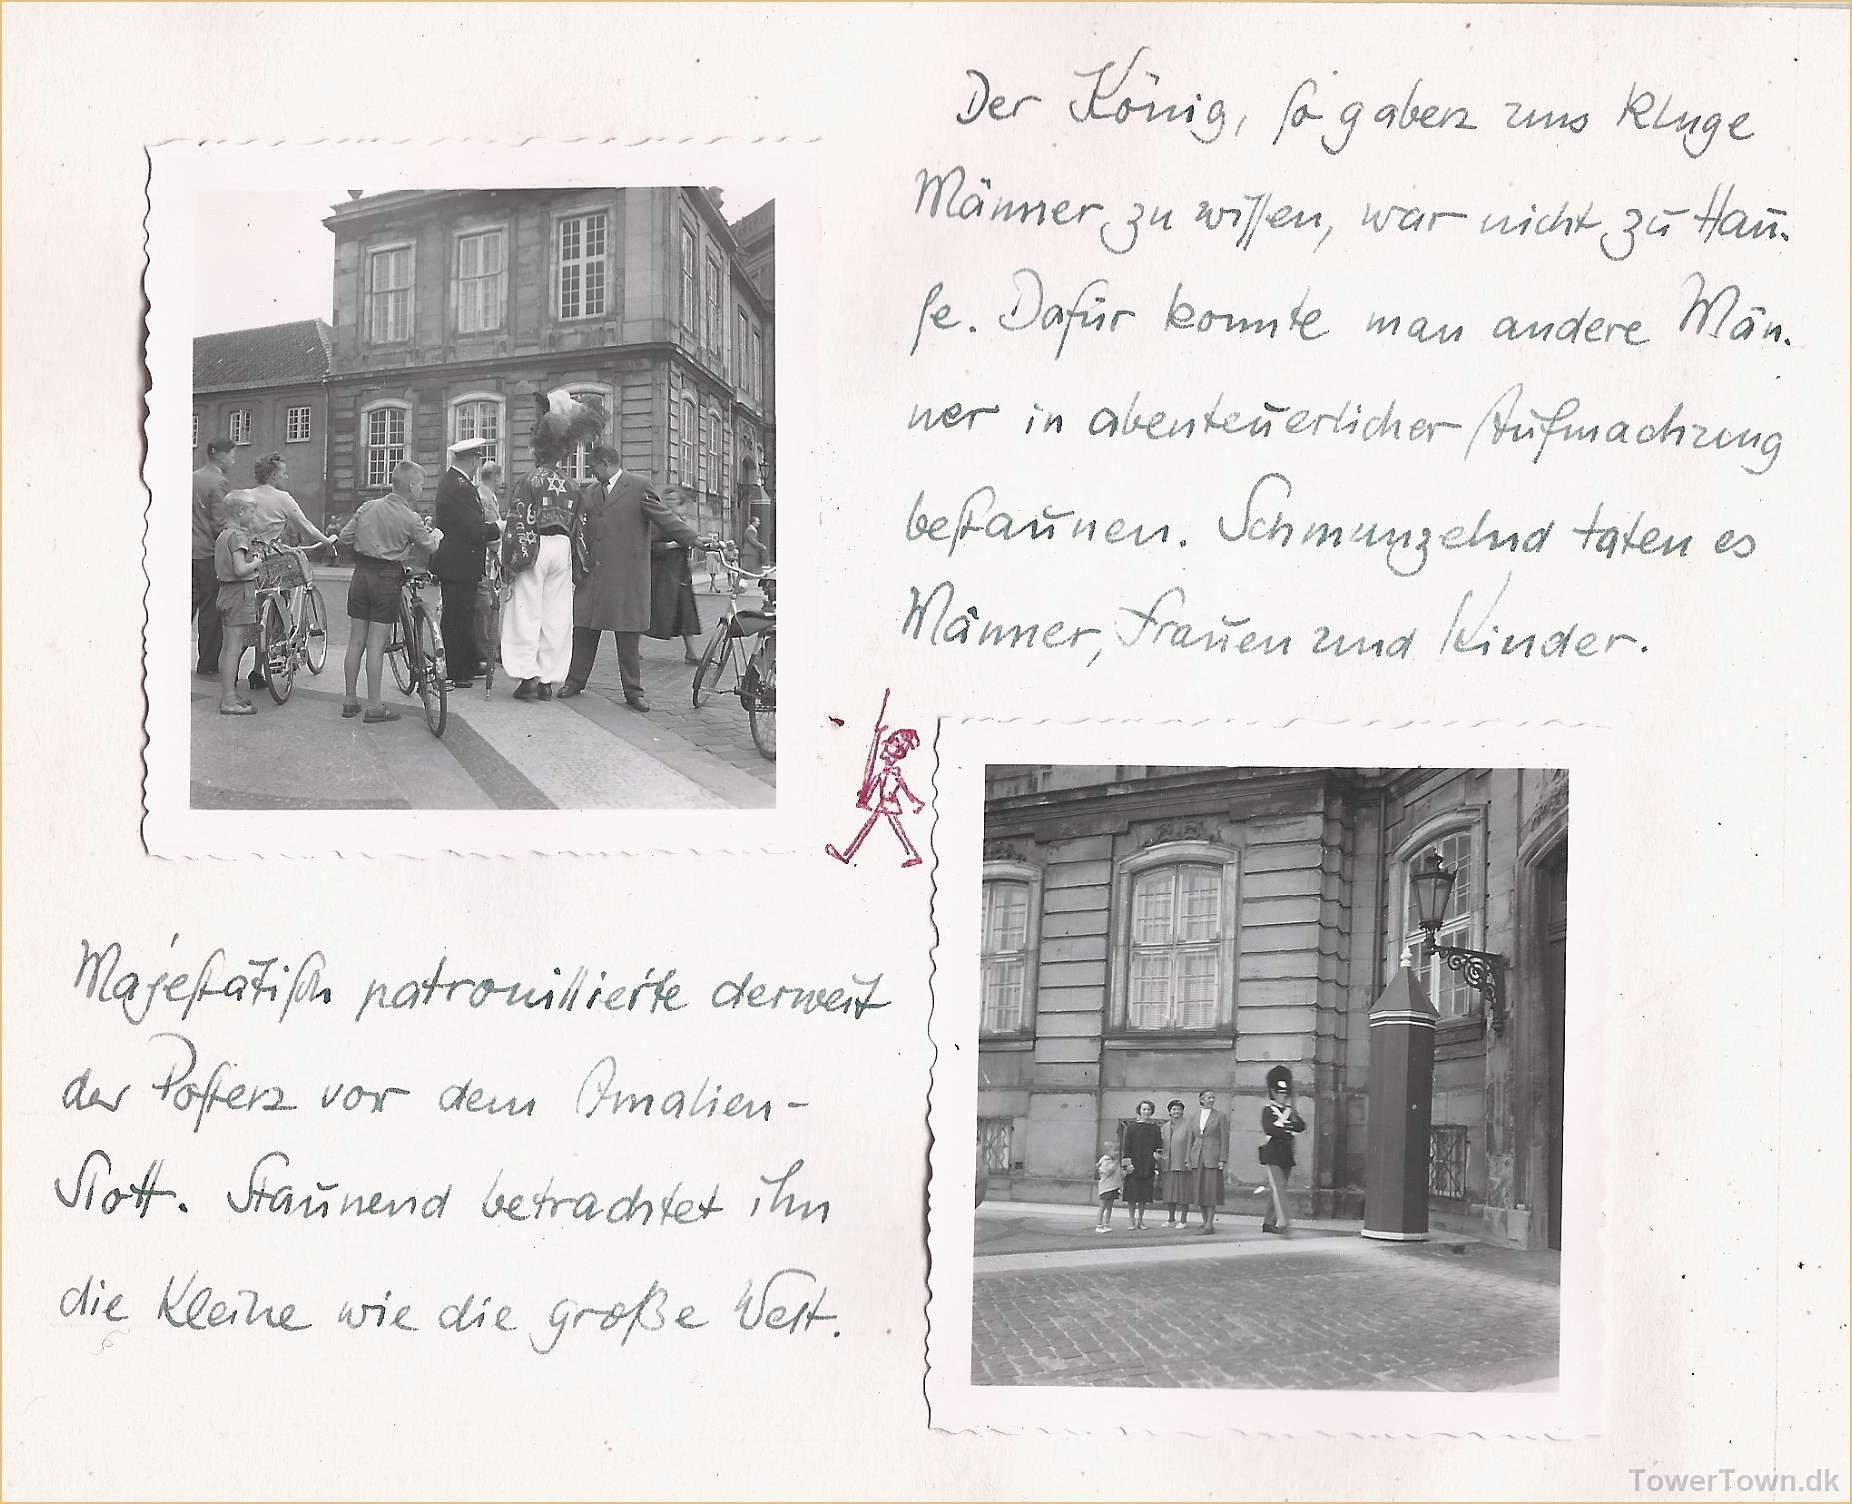 Der König, so gaben uns kluge
Männer zu wissen, war nicht zu Hau-
se. Dafür konnte man andere Män-
ner in abenteuerlicher Aufmachung
bestaunen. Schmunzelnd taten es
Männer, Frauen und Kinder.
Majestätisch patrouillierte derweil
der Posten vor dem Amalien-
Slott. Staunend betrachtet ihn
die kleine wie die große Welt.
TowerTown.dk